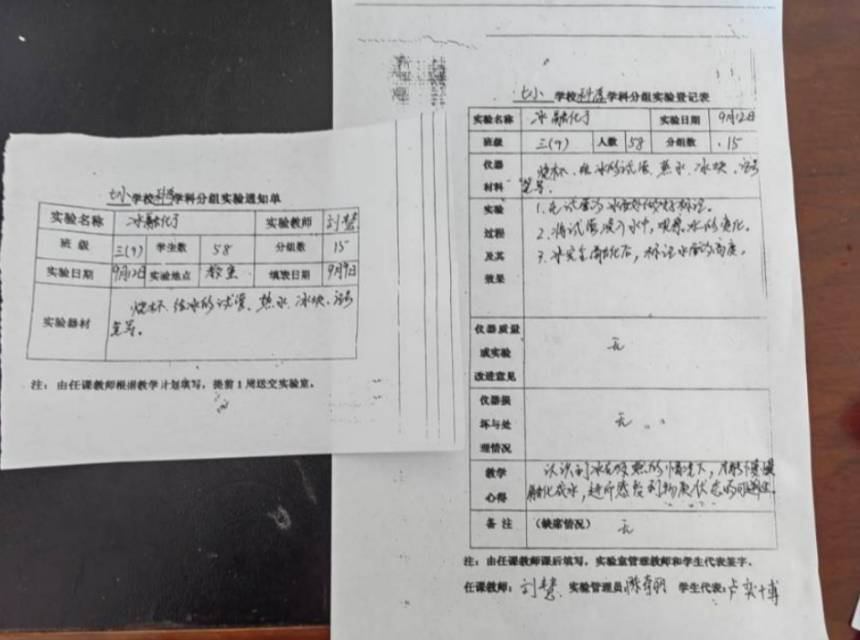 七小学校科学学科分组实验通知单
实验名称 冰融化了 实验教师 刘慧
班级 三(9) 学生数 58 分组数 15
实验日期 9月12日 实验地点 教室 填表日期 9月9日
实验器材 烧杯、结冰的试管、热水、冰块、记号笔等。
注：由任课教师根据教学计划填写，提前1周送交实验室。
七小学校科学学科分组实验登记表
实验名称 冰融化了 实验日期 9月12日
班级 三(9) 人数 58 分组数 15
仪器材料 烧杯、结冰的试管、热水、冰块、记号笔等。
实验过程及其效果 1.在试管的冰面
2.将试管浸入水中，观察冰的变化。
3.冰完全融化后，标记水面的高度。
仪器质量或实验改进意见 无
仪器损坏与处理情况 无
教学心得 认识到冰在受热的情况下，
融化成水，进而感受到物质状态的可逆
备注 （缺席情况） 无
注：由任课教师课后填写，实验室管理教师和学生代表签字。
任课教师：刘慧 实验管理员： 学生代表：卢奕博